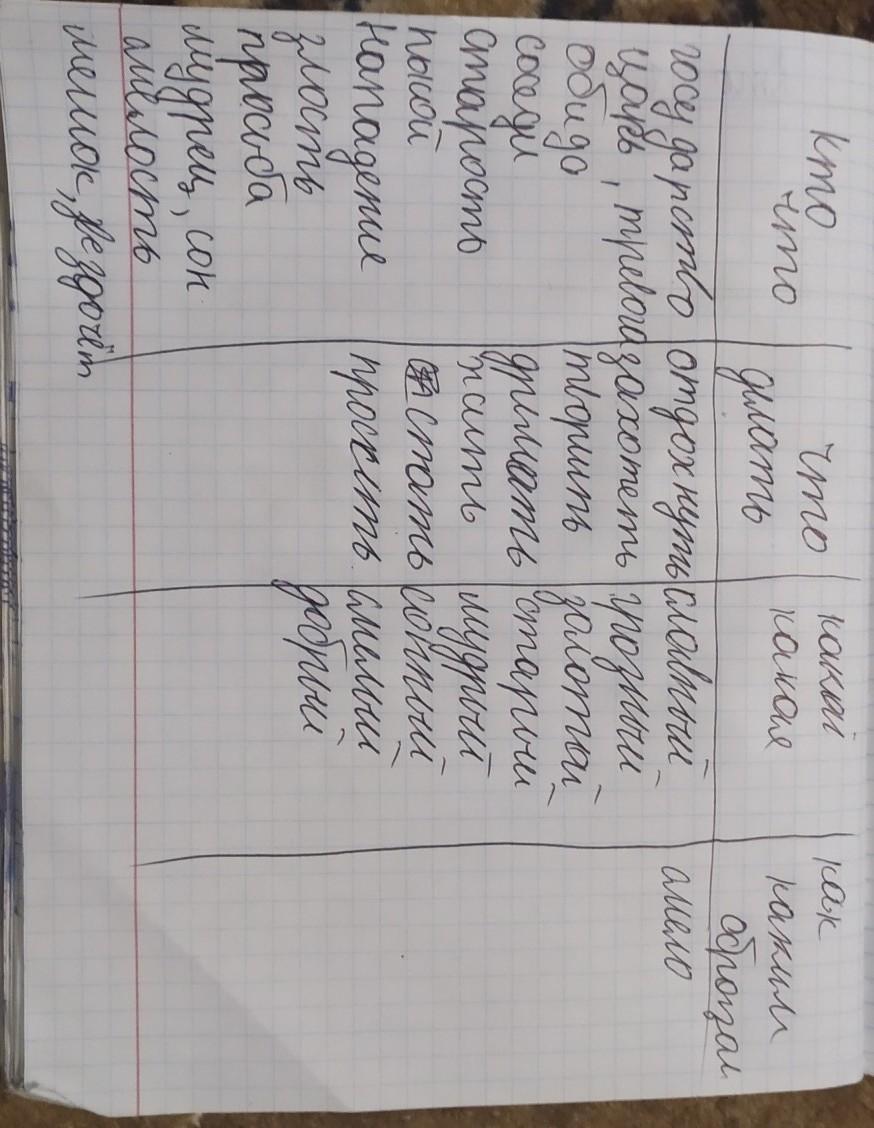 кто что | что делать | какой какая | как каким образом
государство | отдохнуть | славный | смело
царь, тревога | захотеть | грозный
обида | творить | золотой
соседи | дремать | старый
старость | палить | мудрый
покой | стать | сонный
нападение | просить | смелый
злость | добрый
просьба
мудрец, сон
смелость
мешок, звездочёт